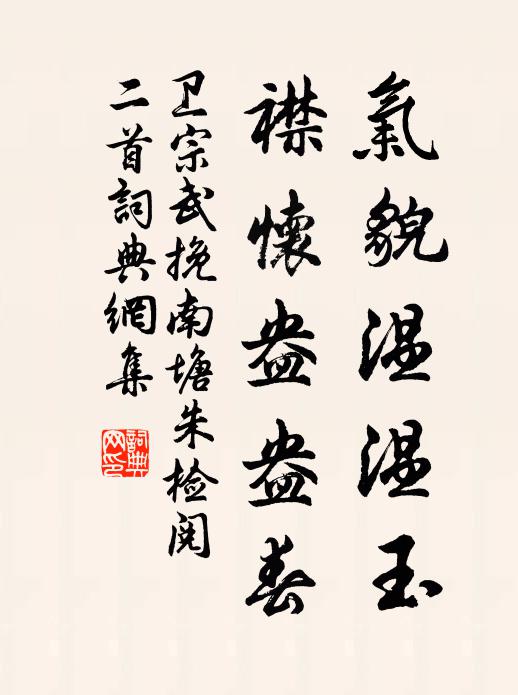 氣貌温温玉
襟懷盎盎春
卫宗武挽南塘朱检阅
二首詞典網集
詞典網印